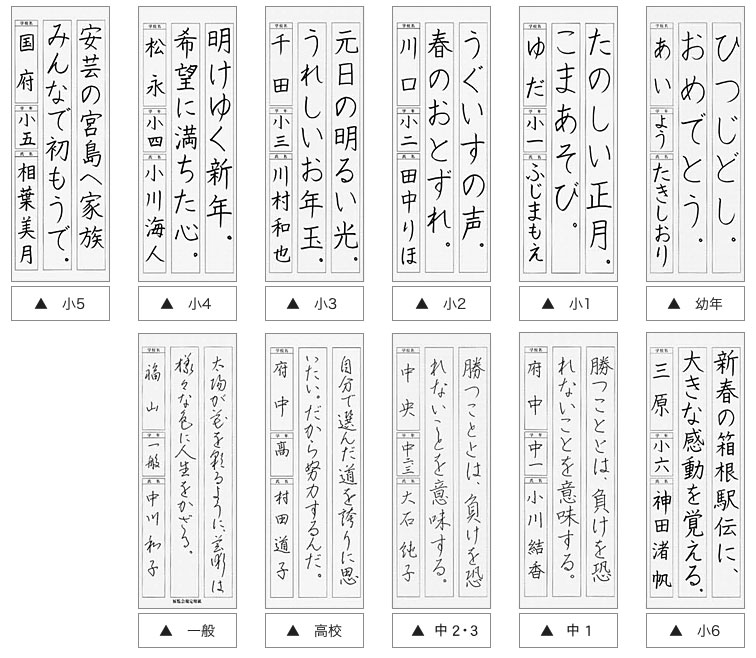 ひつじどし。
おめでとう。
学校名
あい
学年
よう
氏名
たきしおり
▲ 幼年
たのしい正月。
こまあそび。
学校名
ゆだ
学年
小一
氏名
ふじまもえ
▲ 小1
うぐいすの声。
春のおとずれ。
学校名
川口
学年
小二
氏名
田中りほ
▲ 小2
元日の明るい光。
うれしいお年玉。
学校名
千田
学年
小三
氏名
川村和也
▲ 小3
明けゆく新年。
希望に満ちた心。
学校名
松永
学年
小四
氏名
小川海人
▲ 小4
安芸の宮島へ家族
みんなで初もうで。
学校名
国府
学年
小五
氏名
相葉美月
▲ 小5
新春の箱根駅伝に、
大きな感動を覚える。
学校名
三原
学年
小六
氏名
神田渚帆
▲ 小6
勝つこととは、負けを恐
れないことを意味する。
学校名
府中
学年
中一
氏名
小川結香
▲ 中1
勝つこととは、負けを恐
れないことを意味する。
学校名
中央
学年
中二三
氏名
大石純子
▲ 中2・3
自分で選んだ道を誇りに思
いたい。だから努力するんだ。
学校名
府中
学年
高
氏名
村田道子
▲ 高校
太陽が花を彩るように、芸術は
様々な色に人生をかざる。
学校名
福山
学年
一般
氏名
中川和子
▲ 一般